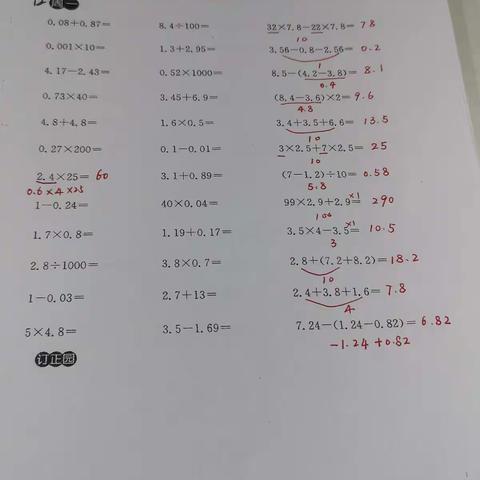 周一
0.08+0.87= 8.4÷100= 32×7.8-22×7.8= 78
10
0.001×10= 1.3+2.95= 3.56-0.8-2.56= 0.2
1
4.17-2.43= 0.52×1000= 8.5-(4.2-3.8)= 8.1
0.4
0.73×40= 3.45+6.9= (8.4-3.6)×2= 9.6
4.8
4.8+4.8= 1.6×0.5= 3.4+3.5+6.6= 13.5
10
0.27×200= 0.1-0.01= 3×2.5+7×2.5= 25
10
2.4×25= 60 3.1+0.89= (7-1.2)÷10= 0.58
0.6×4×25 5.8
1-0.24= 40×0.04= 99×2.9+2.9×1= 290
100
1.7×0.8= 1.19+0.17= 3.5×4-3.5×1= 10.5
3
2.8÷1000= 3.8×0.7= 2.8+(7.2+8.2)= 18.2
10
1-0.03= 2.7+13= 2.4+3.8+1.6= 7.8
4
5×4.8= 3.5-1.69= 7.24-(1.24-0.82)= 6.82
-1.24+0.82
订正园